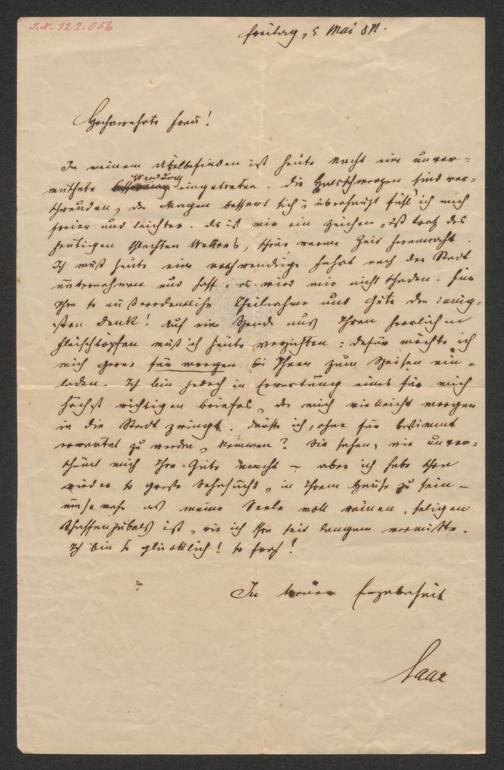 J.N. 122.056
Freitag, 5 Mai 81.
Hochverehrte Frau!
In meinem Uebelbefinden ist heute Nacht eine unver-
muthete Wendung eingetreten. Die Halsschmerzen sind ver-
schwunden, der Magen bessert sich, überhaupt fühl' ich mich
freier und leichter. Es ist mir ein Zeichen, daß trotz des
heutigen schlechten Wetters, schöne warme Zeit herannaht.
Ich muß heute eine nothwendige Fahrt nach der Stadt
unternehmen und hoffe, es wird mir nicht schaden. Für
Ihre so außerordentliche Theilnahme und Güte den innig-
sten Dank! Auf eine Spende aus Ihren herrlichen
Fleischtöpfen muß ich heute verzichten: dafür möchte ich
mich gerne für morgen bei Ihnen zum Speisen ein-
laden. Ich bin jedoch in Erwartung eines für mich
höchst wichtigen Briefes, der mich vielleicht morgen
in die Stadt zwingt. Dürfte ich, ohne für bestimmt
erwartet zu werden, kommen? Sie sehen, wie unver-
schämt mich Ihre Güte macht – aber ich habe schon
wieder so große Sehnsucht, in Ihrem Hause zu sein –
umsomehr als meine Seele voll reinen, seligen
Schaffensjubels ist, wie ich ihn seit langem vermißte.
Ich bin so glücklich! so froh!
In treuer Ergebenheit
Saar